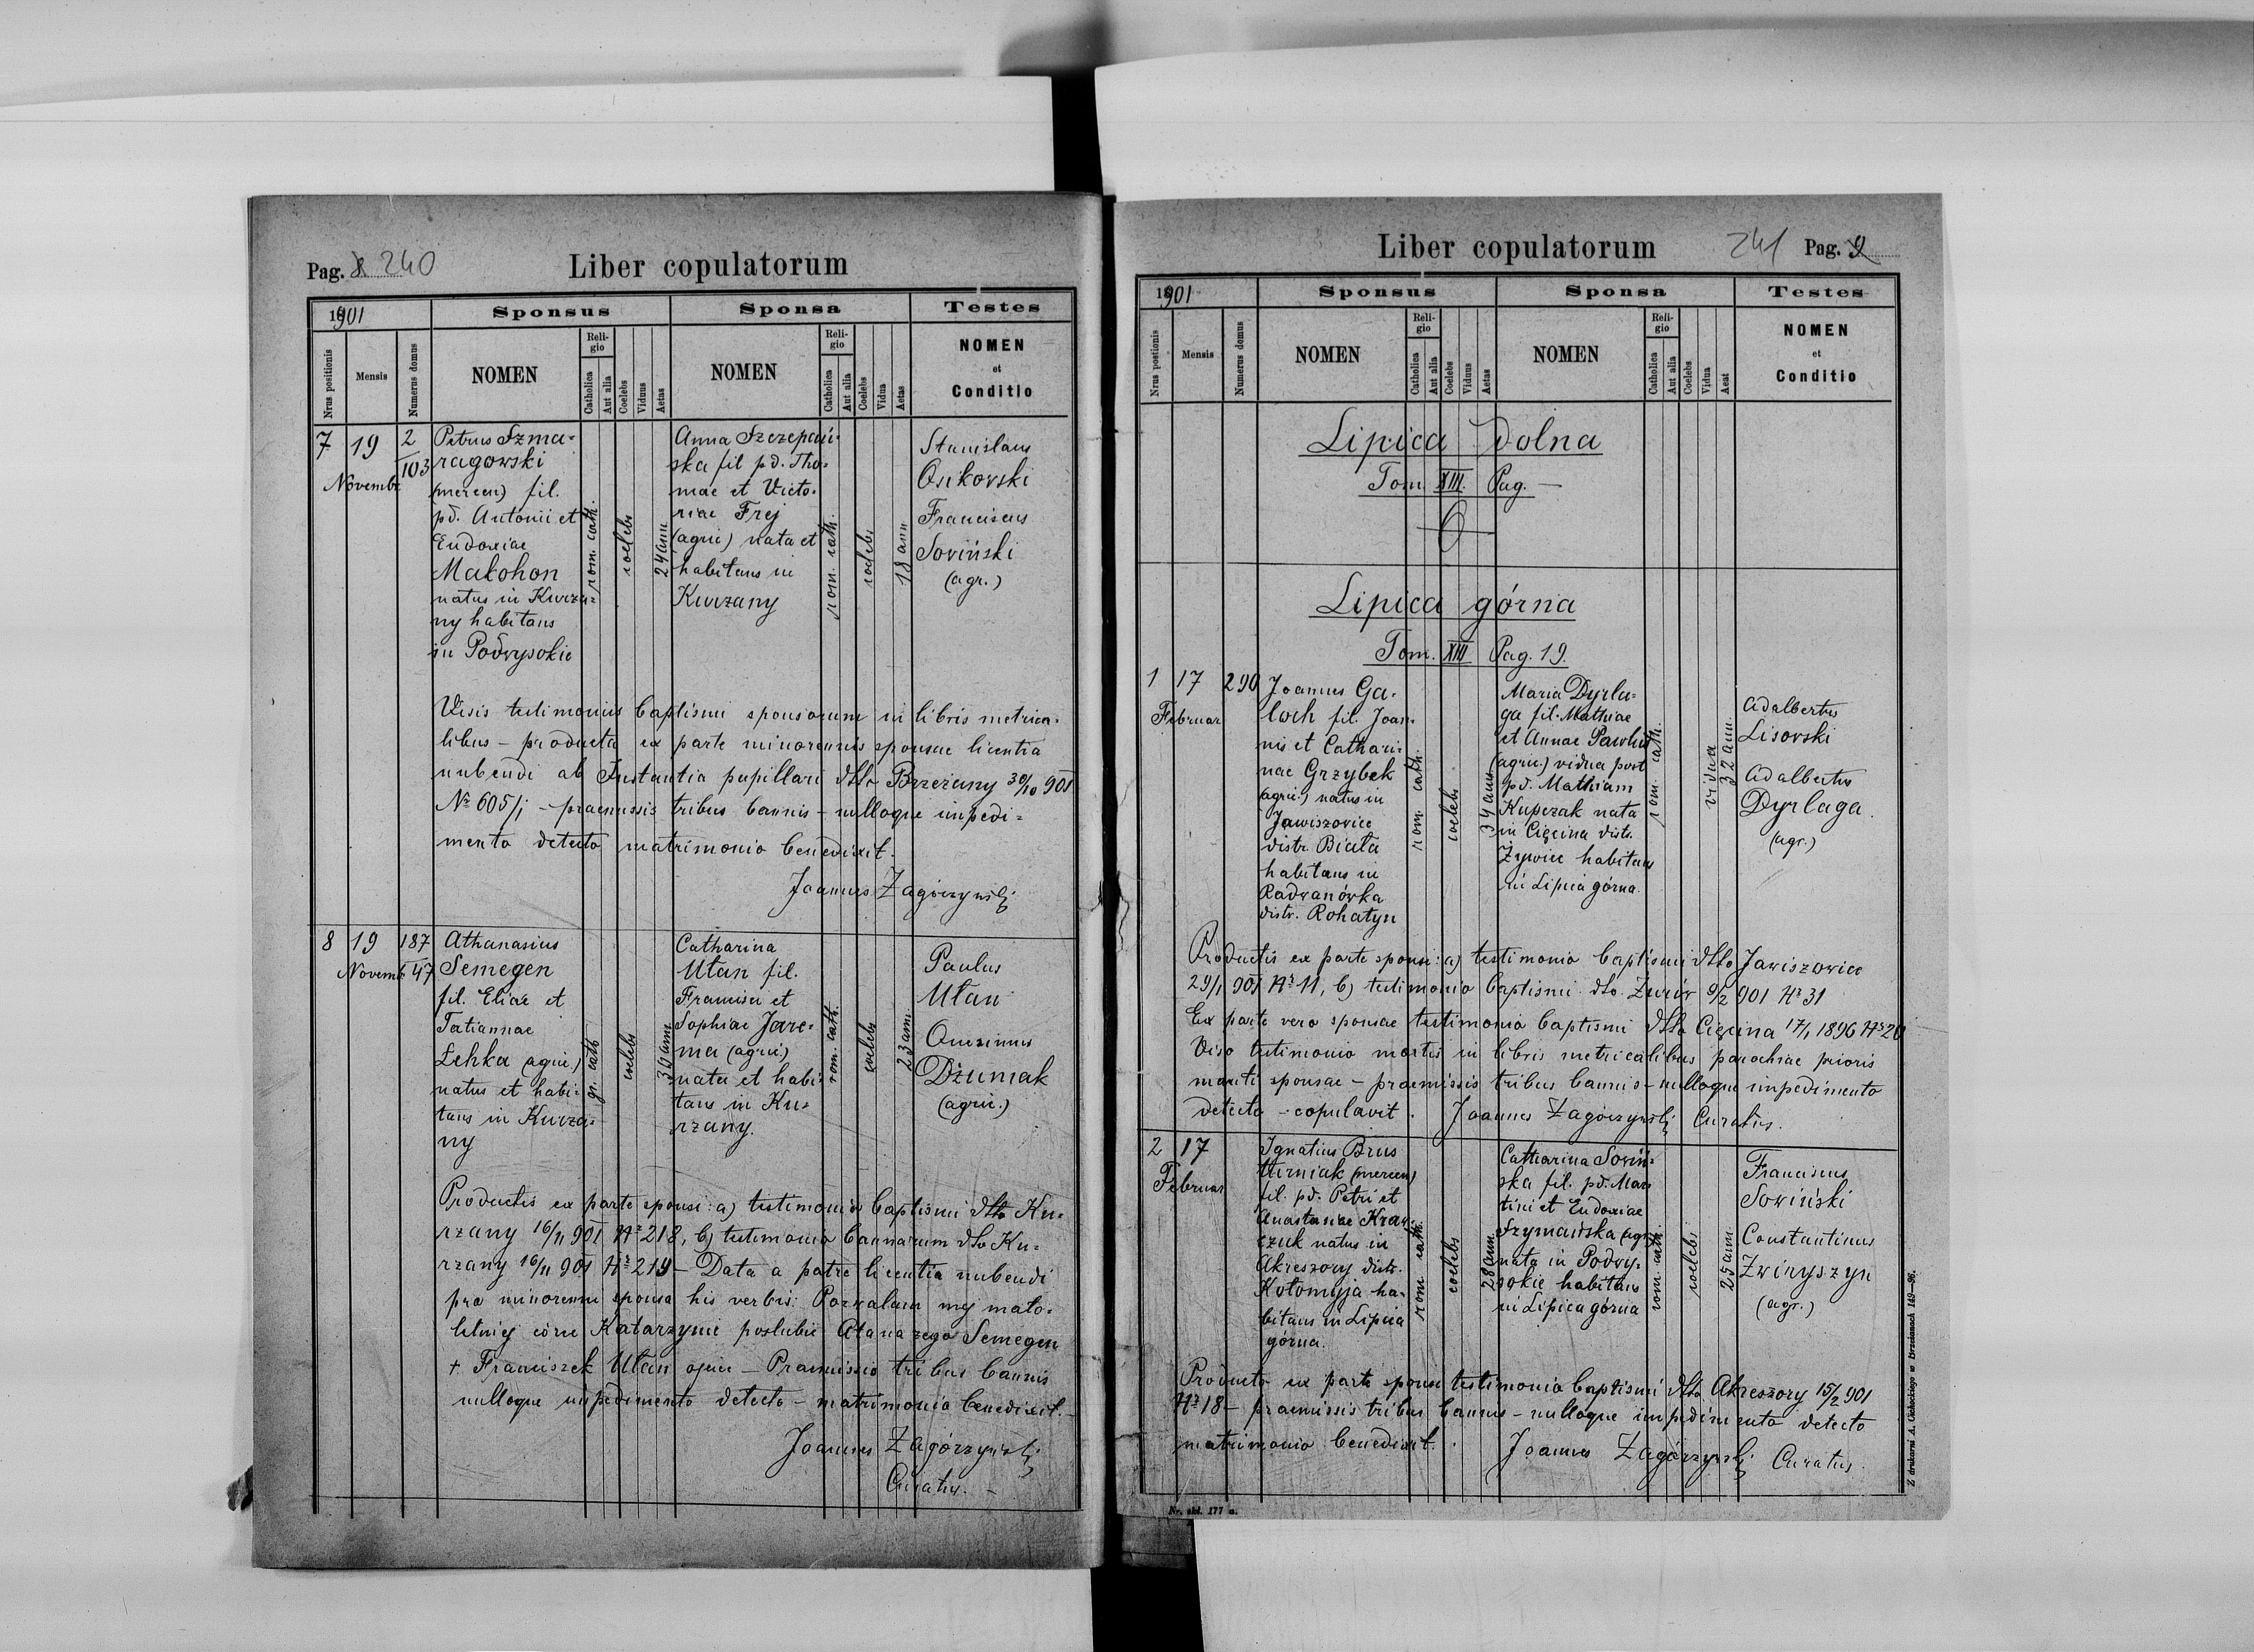 Pag. 8 240
Liber copulatorum
1901
Sponsus
Sponsa
Testes
Nrus positionis
Mensis
Numerus domus
NOMEN
Reli-
gio
Catholica
Aut alia
Coelebs
Viduus
Aetas
NOMEN
Reli-
gio
Catholica
Aut alia
Coelebs
Vidua
Aetas
NOMEN
et
Conditio
7
19
Novembr.
2
103
Petrus Szma-
ragowski
(mercen) fil.
pd. Antonii et
Eudoxiae
Makohon
natus in Kurza-
ny habitans
in Podwysokie
rom. cath.
coelebs
24 ann.
Anna Szczepań-
ska fil pd. Tho-
mae et Victo-
riae Frej
(agric) nata et
habitans in
Kurzany
rom. cath.
coelebs
18 ann
Stanislaus
Osikovski
Franciscus
Soviński
(agr.)
Visis testimoniis baptismi sponsorum in libris metrica-
libus – producta ex parte minorennis sponsae licentia
nubendi ab Instantia pupillari dtto Brzeżany 30/10 901
Nr 605/1 – praemissis tribus bannis – nulloque impedi-
mento detecto matrimonio benedixit.
Joannes Zagórzyński
8
19
Novemb.
187
47
Athanasius
Semegen
fil. Eliae et
Tatiannae
Łehka (agric)
natus et habi-
tans in Kurza-
ny
gr. cath
coelebs
Catharina
Ułan fil.
Francisci et
Sophiae Jare-
ma (agric)
nata et habi-
tans in Ku-
rzany.
rom. cath.
coelebs
23 ann.
Paulus
Ułan
Onesimus
Dżumak
(agric.)
Productis ex parte sponsi: a) testimonio baptismi dtto Ku-
rzany 16/11 901 Nr 218, b) testimonio bannorum dtto Ku-
rzany 16/11 901 Nr 219 – Data a patre licentia nubendi
pro minorenni sponsa his verbis: Pozwalam mej mało-
letniej córce Katarzynie poślubić Atanazego Semegen
+ Franciszek Ułan ojciec – Praemissis tribus bannis
nulloque impedimento detecto – matrimonio benedixit. –
Joannes Zagórzyński
Curatus. –
Liber copulatorum
241 Pag. 9
1901
Sponsus
Sponsa
Testes
Nrus postionis
Mensis
Numerus domus
NOMEN
Reli-
gio
Catholica
Aut alia
Coelebs
Viduus
Aetas
NOMEN
Reli-
gio
Catholica
Aut alia
Coelebs
Vidua
Aeat
NOMEN
et
Conditio
Lipica Dolna
Tom. XIII. Pag. —
Lipica górna
Tom. XIII Pag. 19.
1
17
Februar
290
Joannes Ga-
fil. Joan-
nis et Cathari-
nae Grzybek
(agric.) natus in
Jawiszovice
distr. Biała
habitans in
Radwanówka
distr. Rohatyn
rom. cath.
coelebs
34 ann.
Maria Dyrla-
ga fil. Mathiae
et Annae Pawlus
(agric.) vidua post
pd. Mathiam
Kupczak nata
in Cięcina distr.
Żywiec habitans
in Lipica górna.
rom. cath.
vidua
32 ann.
Adalbertus
Lisovski
Adalbertus
Dyrlaga.
(agr.)
Productis ex parte sponsi: a) testimonio baptismi dtto Jawiszowice
29/1 901 Nr 11, b) testimonio baptismi dto. Żurów 9/2 901 Nr 31
Ex parte vero sponsae testimonio baptismi dtto Cięcina 17/1 1896 Nr 20
Viso testimonio mortis in libris metricalibus parochiae prioris
mariti sponsae – praemissis tribus bannis – nulloque impedimento
detecto – copulavit. Joannes Zagórzyński Curatus.
2
17
Februar
Ignatius Brus
turniak (mercen)
fil. pd. Petri et
Anastasiae Kraw-
czuk natus in
Akreszory distr.
Kołomyja ha-
bitans in Lipica
górna.
rom. cath.
coelebs
28 ann.
Catharina Soviń-
ska fil. pd. Mar
tini et Eudoxiae
Szymańska (agr)
nata in Podwy-
sokie habitans
in Lipica górna
rom. cath.
coelebs
25 ann.
Franciscus
Sowiński
Constantinus
Zwiryszyn
(agr.)
Producto ex parte sponsi testimonio baptismi dtto Akreszory 15/2 901
Nr 18 – praemissis tribus bannis – nulloque impedimento detecto
matrimonio benedixit. Joannes Zagórzyński Curatus.
Nr. skł. 177 a.
Z drukarni A. Cichockiego w Brzeżanach 149—96.